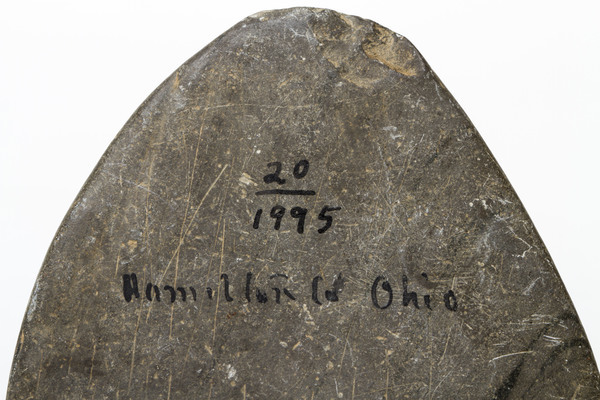 20
1995
Hamilton Co Ohio